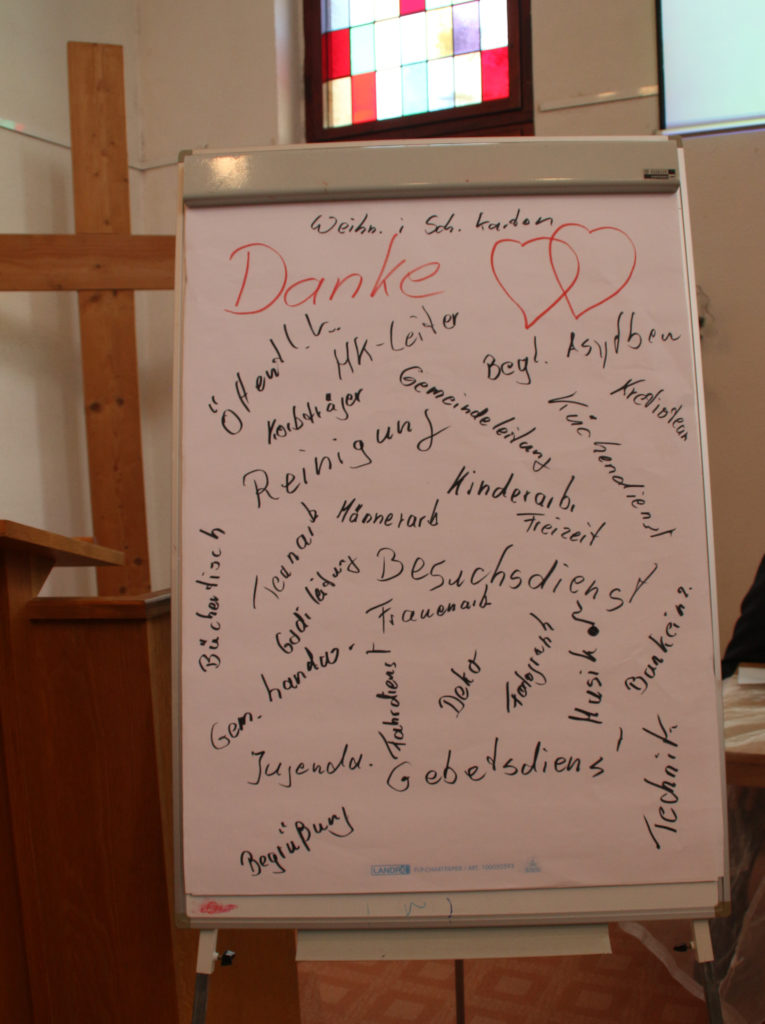 Weihn. i Sch. karton
Danke
Öffentl.
HK-Leiter
Begl. Asylben
Korbträger
Gemeindeleitung
Kreativteam
Küchendienst
Reinigung
Kinderarb.
Männerarb
Freizeit
Teenarb
Büchertisch
Godi leitung
Besuchsdienst
Frauenarb
Gem. handw.
Fahrdienst
Deko
Fotograph
Musik
Bankeinz.
Jugenda.
Gebetsdienst
Technik
Begrüßung
LANDRÉ